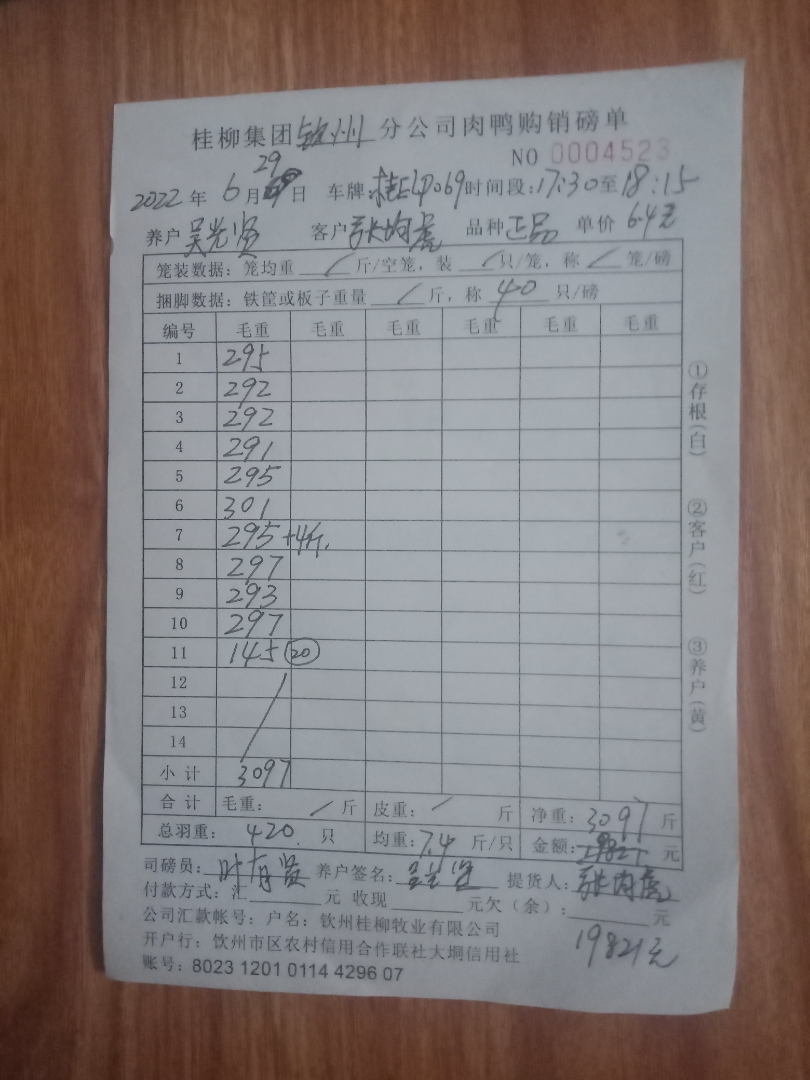 桂柳集团钦州分公司肉鸭购销磅单
NO 0004523
2022年6月29日 车牌:桂ELP069时间段:17:30至18:15
养户吴光贤 客户张均虎 品种正品 单价6.4元
笼装数据:笼均重/斤/空笼,装/只/笼,称/笼/磅
捆脚数据:铁筐或板子重量/斤,称40只/磅
编号 毛重 毛重 毛重 毛重 毛重 毛重
1 295
2 292
3 292
4 291
5 295
6 301
7 295+4斤
8 297
9 293
10 297
11 145 20
12
13
14
小计 3097
合计 毛重:/斤 皮重:/斤 净重:3097斤
总羽重:420只 均重:7.4斤/只 金额:元
司磅员:叶有贤 养户签名: 提货人:张均虎
付款方式:汇 元 收现 元欠(余): 元
19821元
公司汇款帐号:户名:钦州桂柳牧业有限公司
开户行:钦州市区农村信用合作联社大垌信用社
账号:8023 1201 0114 4296 07
①存根(白)
②客户(红)
③养户(黄)